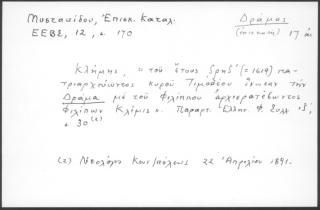 Μυστακίδου, Ἐπισκ. Καταλ.
ΕΕΒΣ, 12, σ. 170
Δράμας
(ἐπισκοπή) 17 αἰ.
Κλήμης, "τοῦ ἔτους ζρκζ' (=1619) πα-
τριαρχεύοντος κυροῦ Τιμοθέου τὴν
Δράμα μὲ τοῦ Φιλίππου ἀρχιερατεύοντος
Φιλίππων Κλήμη". Παραρτ. Ἑλλην. Φ. Συλλ.
σ 30 (2)
(2) Νεολόγος Κων/πόλεως 22 Ἀπριλίου 1891.